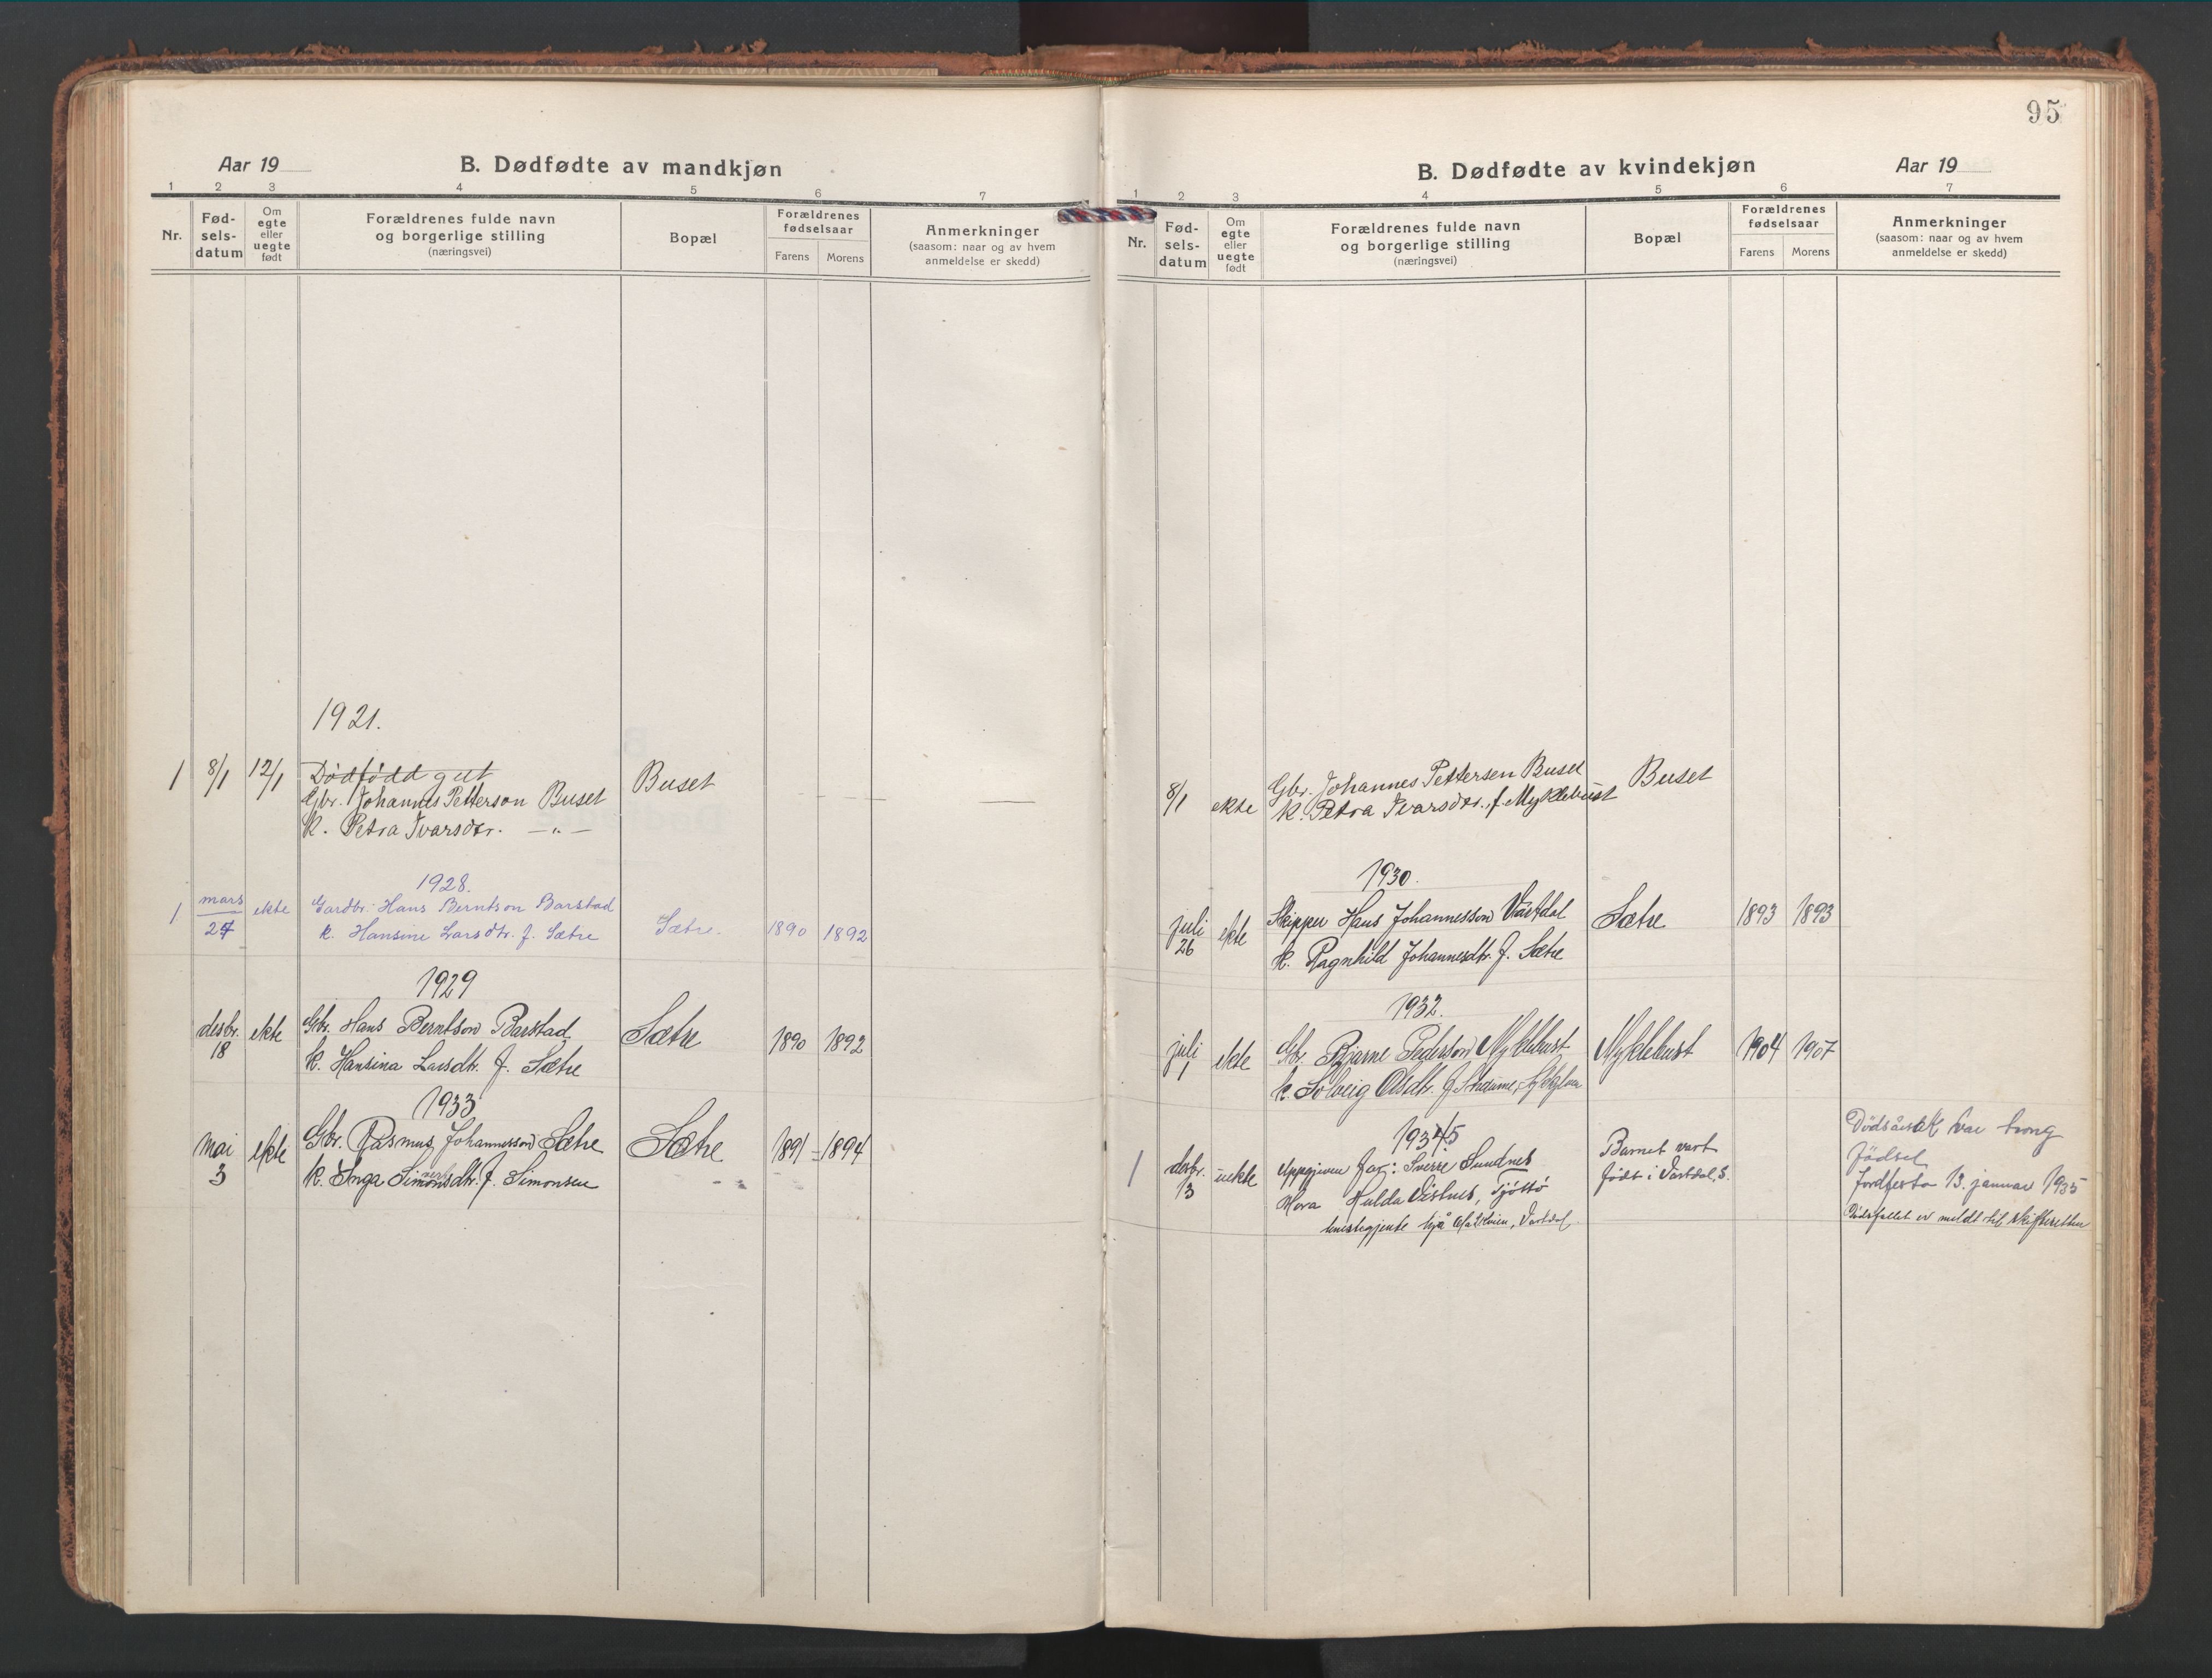 95
Aar 19
B. Dødfødte av mandkjøn
1 2 3 4 5 6 7
Nr.
Fød-
sels-
datum
Om
egte
eller
uegte
født
Forældrenes fulde navn
og borgerlige stilling
(næringsvei)
Bopæl
Forældrenes
fødselsaar
Farens Morens
Anmerkninger
(saasom: naar og av hvem
anmeldelse er skedd)
1921.
1 8/1 12/1 Dødfødd gut
Gbr. Johannes Petterson Buset Buset
k. Petra Ivarsdtr. — „ —
1928.
1 mars 24 ekte Gardbr. Hans Berntson Barstad
k. Hansine Larsdtr. f. Sætre Sætre. 1890 1892
1929
desbr. 18 ekte Gbr. Hans Berntson Barstad Sætre 1890 1892
k. Hansina Larsdtr. f. Sætre
1933
mai 3 ekte Gbr. Rasmus Johannesson Sætre Sætre 1891 - 1894
k. Inga Simonsdtr. f. Simonsen
B. Dødfødte av kvindekjøn
Aar 19
1 2 3 4 5 6 7
Nr.
Fød-
sels-
datum
Om
egte
eller
uegte
født
Forældrenes fulde navn
og borgerlige stilling
(næringsvei)
Bopæl
Forældrenes
fødselsaar
Farens Morens
Anmerkninger
(saasom: naar og av hvem
anmeldelse er skedd)
8/1 ekte Gbr. Johannes Pettersen Buset Buset
k. Petra Ivarsdtr. f. Myklebust
1930.
juli 26 ekte Skipper Hans Johannesson Vartdal Sætre 1893 1893
k. Ragnhild Johannesdtr. f. Sætre
1932.
juli 1 ekte Gbr. Bjarne Pederson Myklebust Myklebust 1904 1907
k. Solveig Olsdtr. f.
19345
1 desbr. 13 uekte Uppgjeven far: Sverre Sundnes
Mora Hulda Vistnes,
hjå Vartdal
Barnet vart
født i Vartdal, S.
Dødsårsak var trong
fødsel
Jordfesta 13. januar 1935
Dødsfallet er meldt til skifteretten